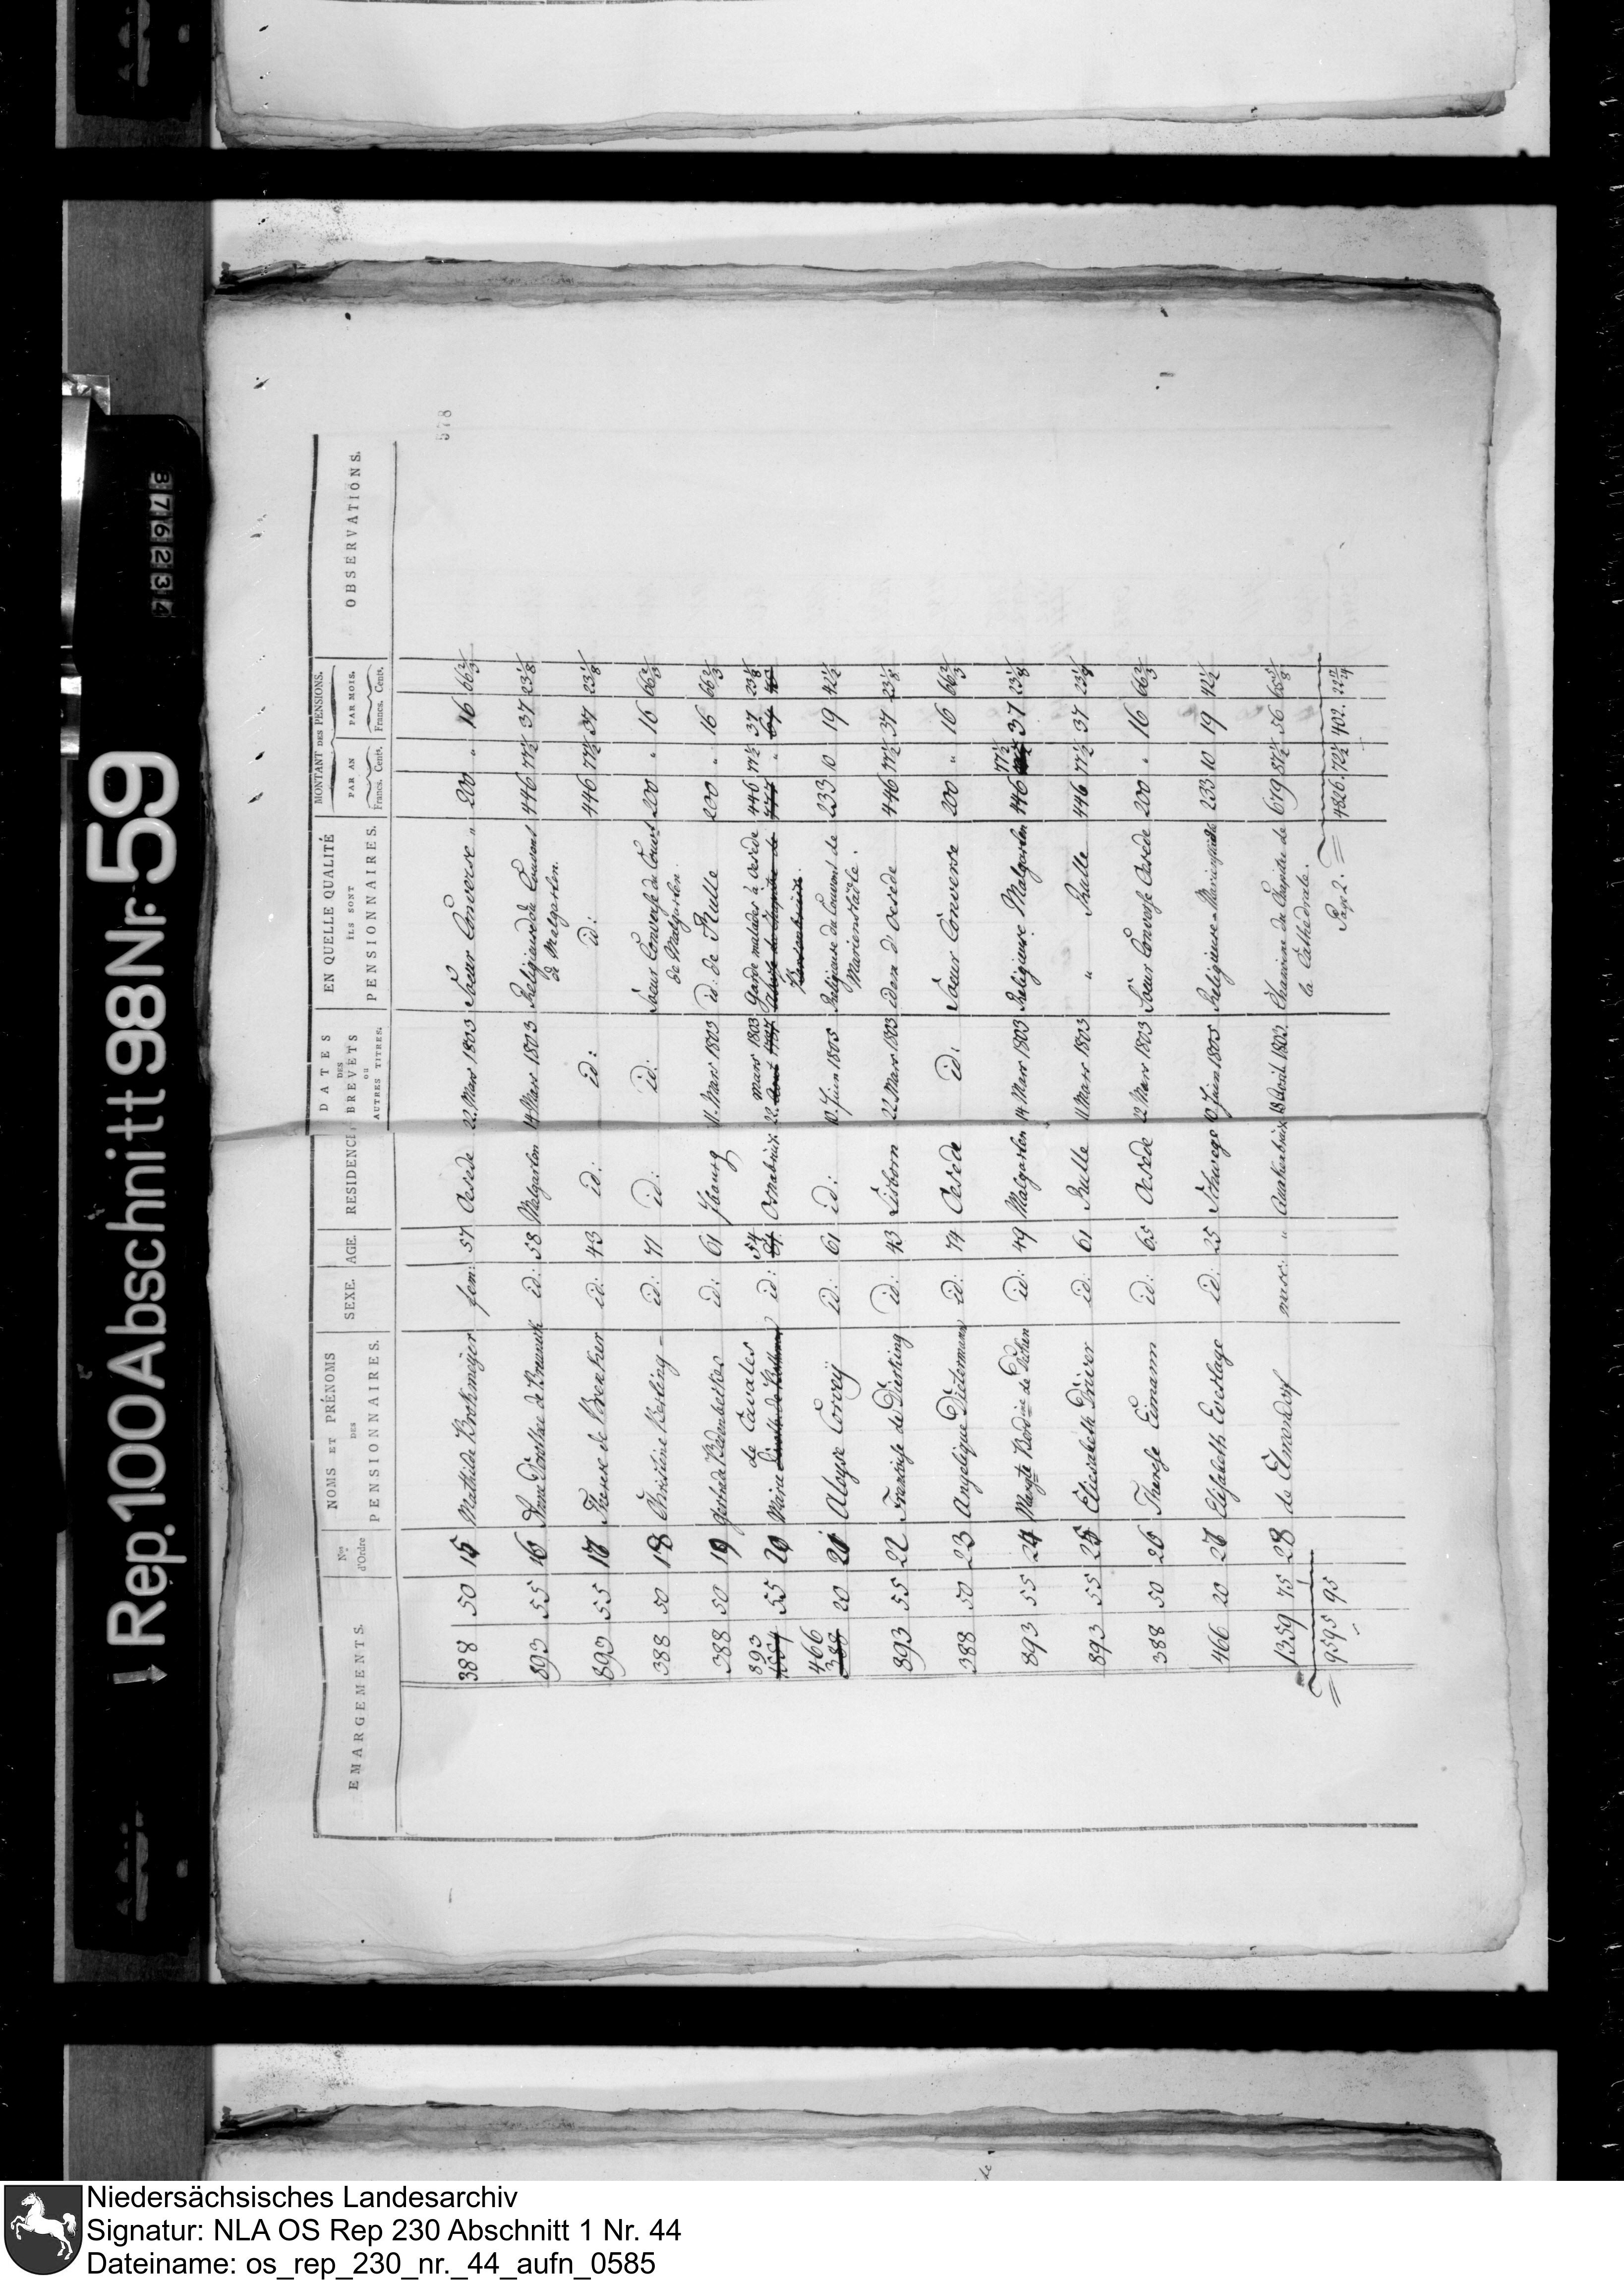 EMARGEMENTS. Nos d'Ordre NOMS ET PRÉNOMS DES PENSIONNAIRES. SEXE. AGE. RESIDENCE DATES DES BREVETS OU AUTRES TITRES. EN QUELLE QUALITÉ ILS SONT PENSIONNAIRES. MONTANT DES PENSIONS. PAR AN Francs. Cents. PAR MOIS. Francs. Cents. OBSERVATIONS.
578
388 50 15 Mathilde Brokmeyer fem: 57 Oesede 22. Mars 1803 Soeur Converse " 200 " 16 66 2/3
893 55 16 Anne Dorothee de id: 58 Malgarten 14 Mars 1803 Religieuse du Couvent 446 77 1/2 37 23 1/8
de Malgarten.
893 55 17 Therese de id: 43 id: id: id: 446 77 1/2 37 23 1/8
388 50 18 Christine Berling id: 71 id: id: Soeur Converse du Couvent 200 " 16 66 2/3
de Malgarten
388 50 19 id: 61 Ibourg 11. Mars 1803 id: de Rulle 200 " 16 66 2/3
893 de Cavales 54 mars 1803 Garde malades à Oesede 446 77 1/2 37 23 1/8
55 20 Marie id: Osnabrück 22.
466 20 21 Aloyse Corvey id: 61 id: 10. Juin 1805 Religieuse du Couvent de 233 10 19 42 1/2
388
Marienstädte.
893 55 22 de Dürking id: 43 Lisborn 22 Mars 1803 idem d'Oesede 446 77 1/2 37 23 1/8
388 50 23 Angelique Dictermann id: 74 Oesede id: Soeur Converse 200 " 16 66 2/3
893 55 24 de id: 49 Malgarten 14 Mars 1803 Religieuse Malgarten 446 77 1/2 37 23 1/8
893 55 25 Eliesabeth Drüver id: 61 Rulle 11 Mars 1803 " Rulle 446 77 1/2 37 23 1/8
388 50 26 Therese Eimann id: 65 Oesede 22 Mars 1803 Soeur Converse Oesede 200 " 16 66 2/3
466 20 27 Elisabeth Everlage id: 25 Schwege 10 Juin 1805 Religieuse 233 10 19 42 1/2
1359 75 28 de Elmendorf masc: " Quakenbrück 18 Avril 1803. Chanoine du Chapitre de 679 87 1/2 56 65 5/8
la Cathedrale.
9595 95 Page 2. 4826. 72 1/2 402. 22 17/24
↓ Rep.100 Abschnitt 98 Nr. 59
876234
Niedersächsisches Landesarchiv
Signatur: NLA OS Rep 230 Abschnitt 1 Nr. 44
Dateiname: os_rep_230_nr._44_aufn_0585